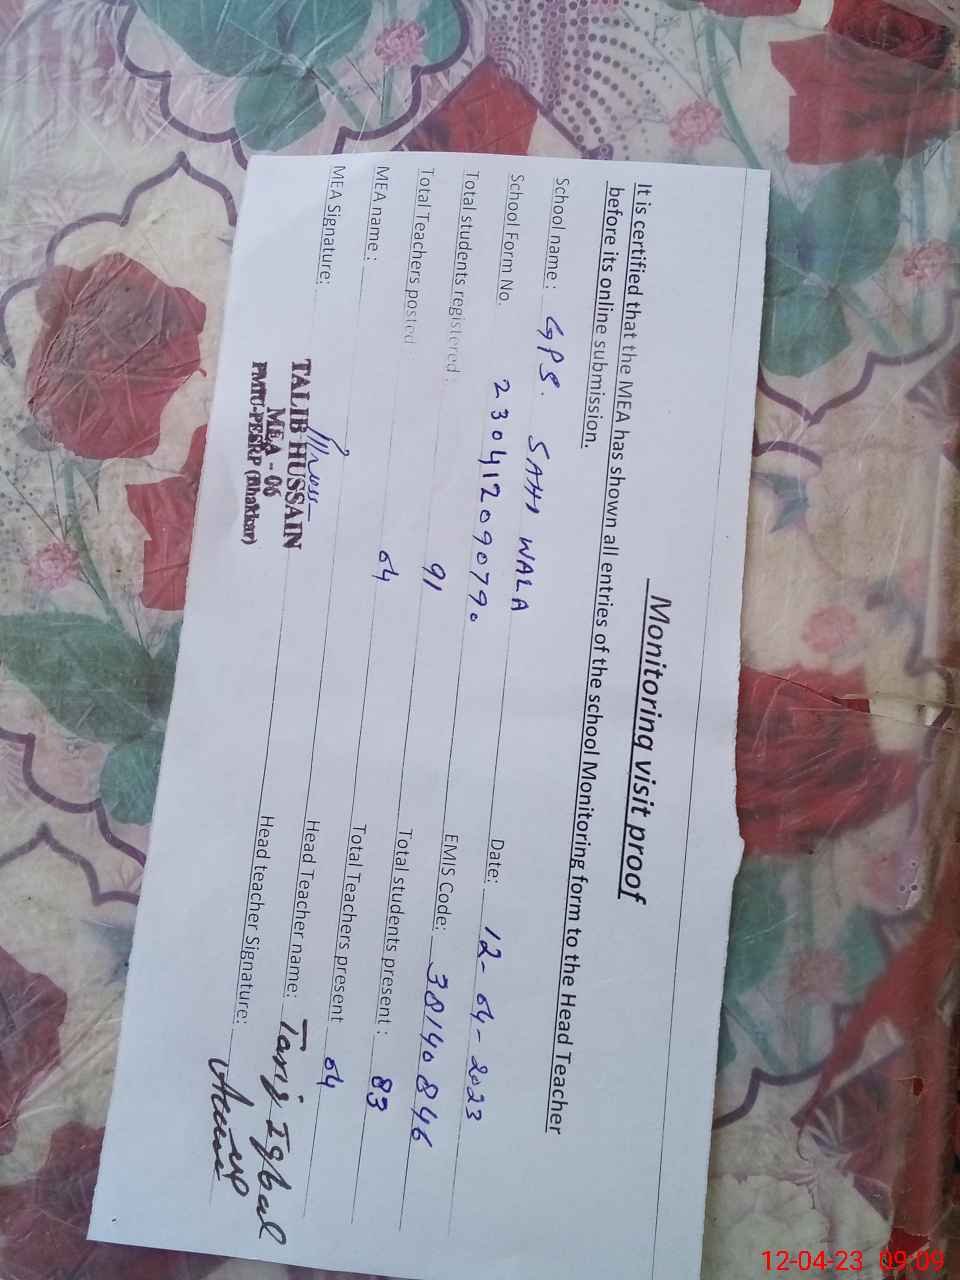 Monitoring visit proof
It is certified that the MEA has shown all entries of the school Monitoring form to the Head Teacher
before its online submission.
School name: GPS. SAHI WALA Date: 12-04-2023
School Form No. 230412090790 EMIS Code: 38140846
Total students registered: 91 Total students present: 83
Total Teachers posted: 04 Total Teachers present 04
MEA name: Head Teacher name: Tariq Iqbal
MEA Signature: Head teacher Signature:
TALIB HUSSAIN
MEA - 06
PMIU-PESRP (Bhakkar)
12-04-23 09:09